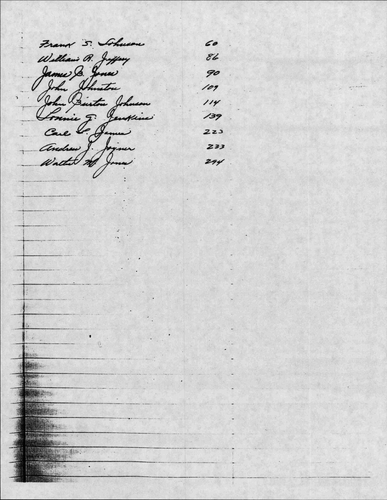 Frank S. Johnson 60
William R. Jeffrey 86
James B. Jones 90
John Johnston 109
John Burton Johnson 114
Lonnie G. Jenkins 139
Carl James 223
Andrew J. Joyner 233
Walter M. Jones 294